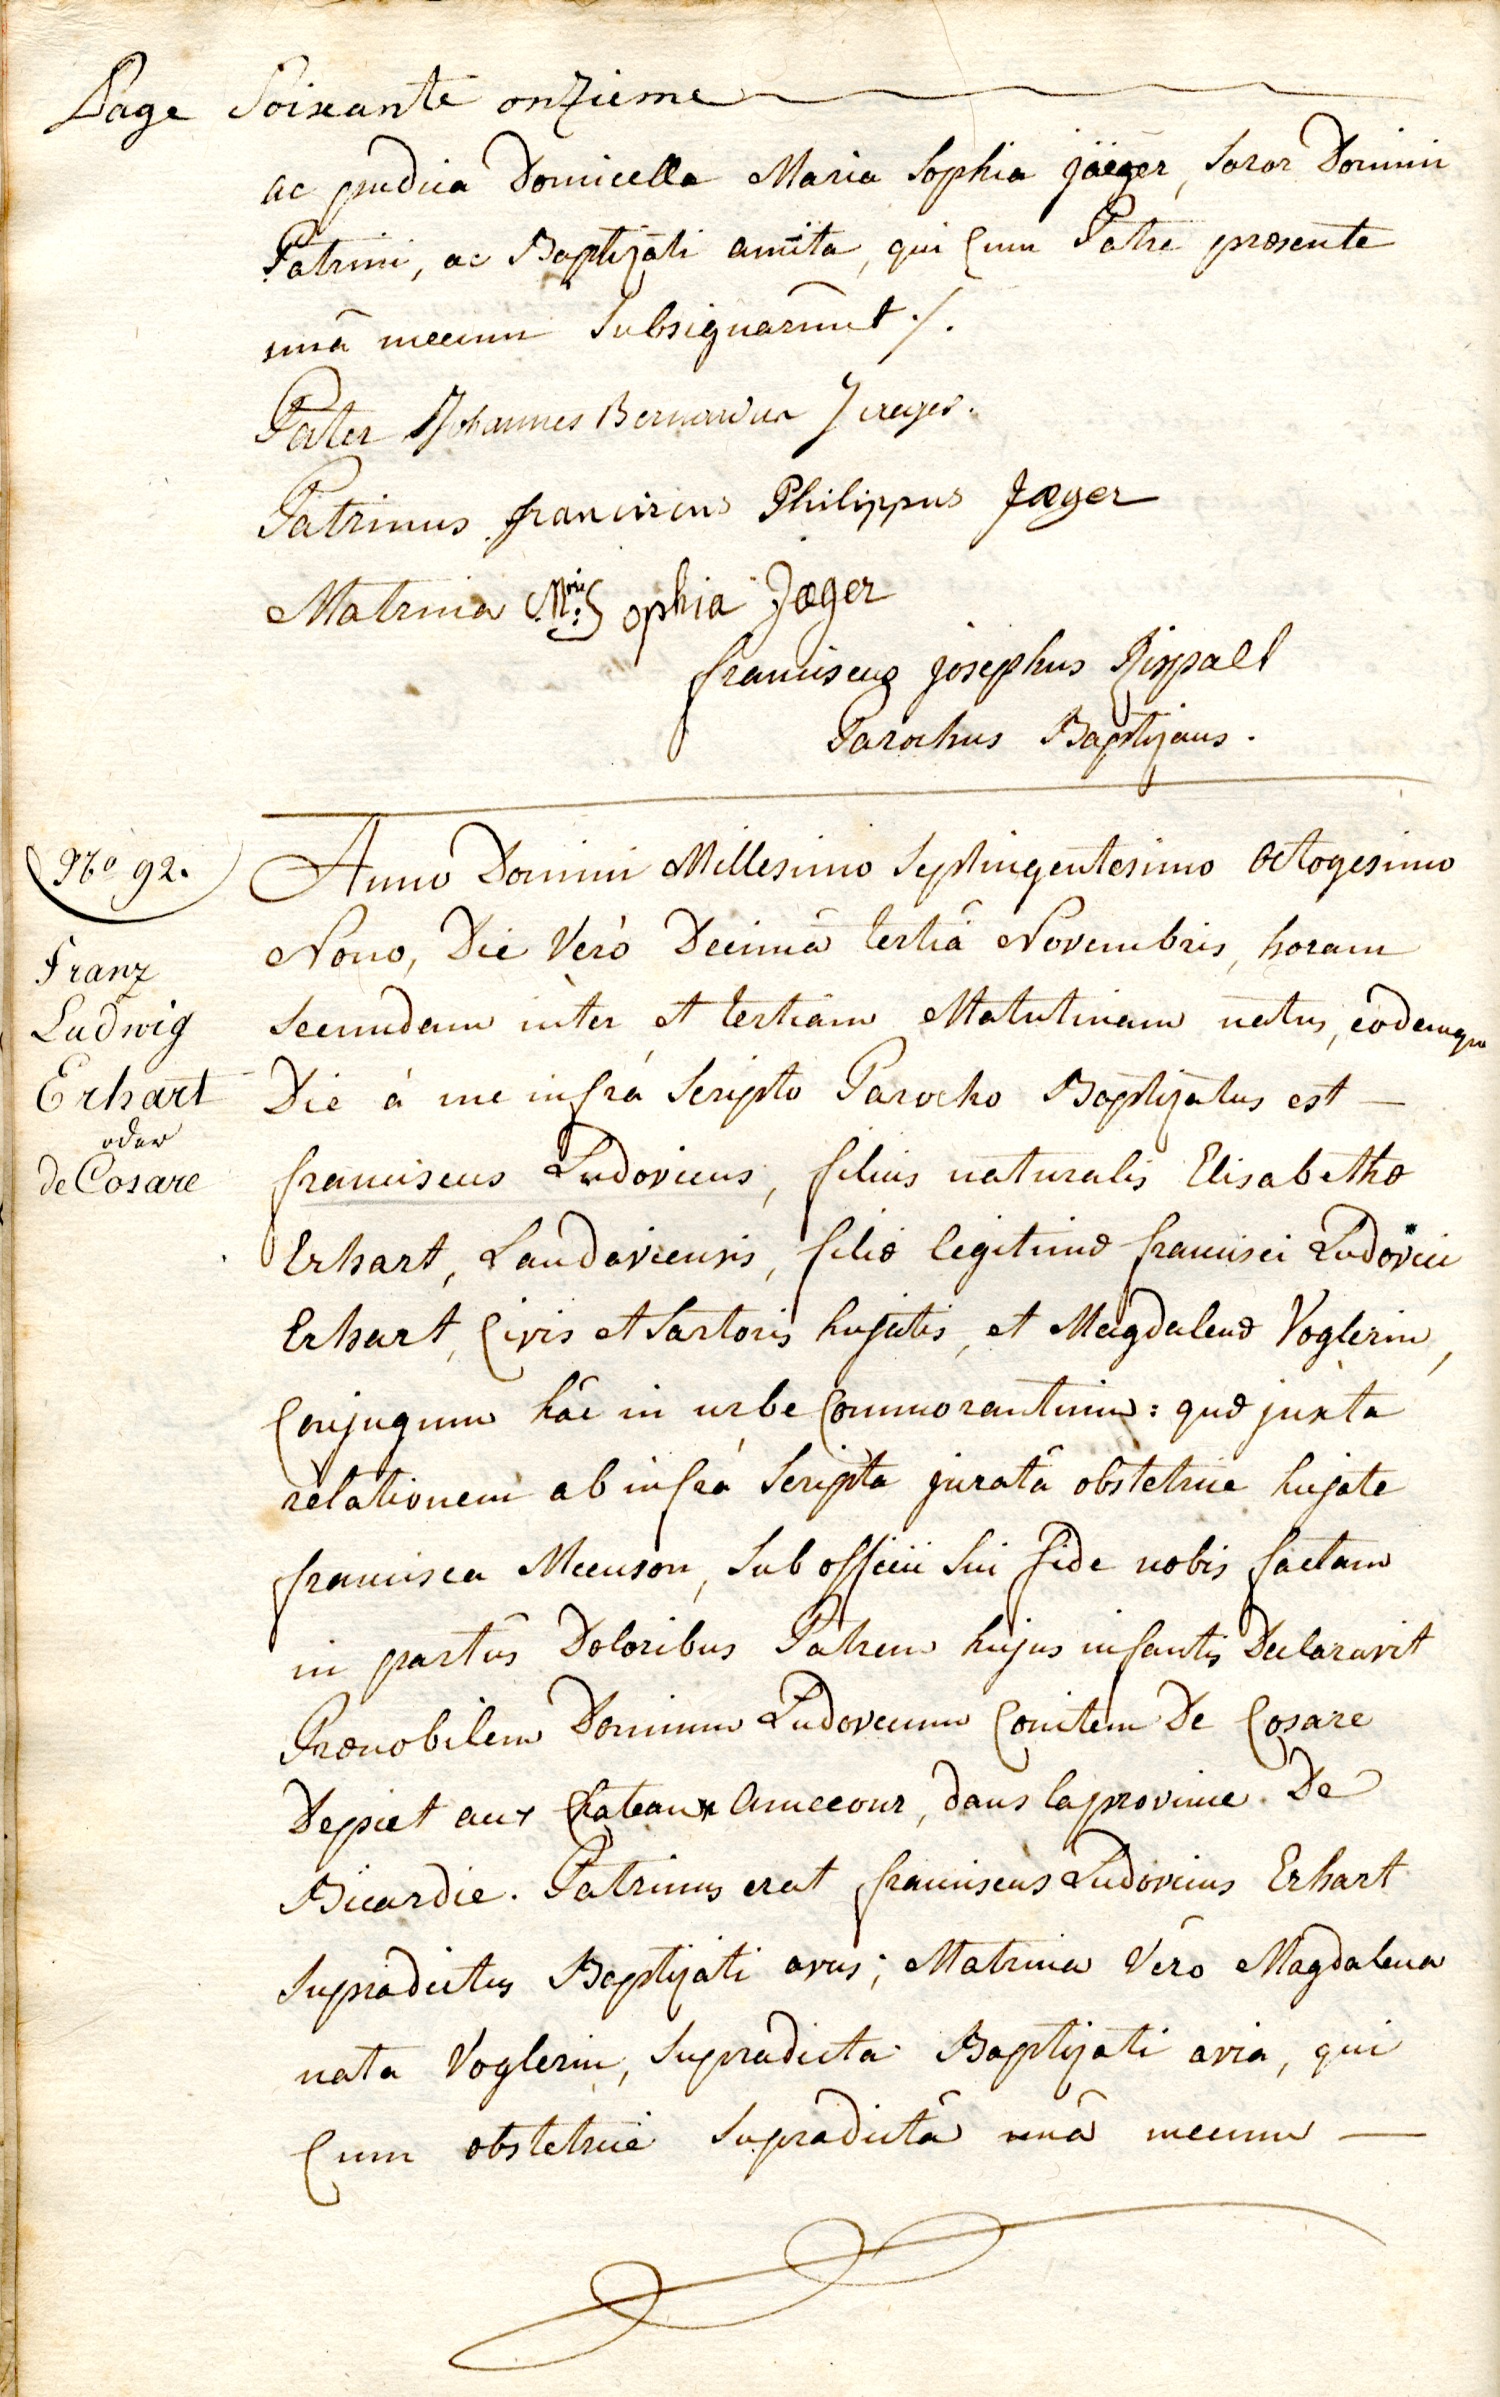 Page Soixante onzieme
ac pudica Domicella Maria Sophia jäeger, Soror Domini
Patrini, ac Baptizati amita, qui Cum Patre præsente
unâ mecum Subsignarunt ./.
Pater Johannes Bernardus Jaeger.
Patrinus franciscus Philippus Jæger
Matrina M:ria Sophia Jæger
franciscus josephus Rispalt
Parochus Baptizans.
Nro 92.
Franz
Ludwig
Erhart
oder
de Cosare
Anno Domini Millesimo Septingentesimo Octogesimo
Nono, Die Verò Decimâ tertiâ Novembris, horam
Secundam inter et tertiam Matutinam natus, eodemque
Die à me infrà Scripto Parocho Baptizatus est —
franciscus Ludovicus, filius naturalis Elisabethæ
Erhart, Landaviensis, filiæ legitimæ francisci Ludovici
Erhart, Civis et Sartoris hujatis, et Magdalenæ Voglerin,
Conjugum hâc in urbe Commorantium: quæ juxta
relationem ab infrà Scripta juratâ obstetrice hujate
francisca Meenson, Sub officii Sui fide nobis factam
in partûs Doloribus Patrem hujus infantis Declaravit
Prænobilem Dominum Ludovicum Comitem De Cosare
Depiet aux Chateaux Amecour, dans la province De
Bicardie. Patrinus erat franciscus Ludovicus Erhart
Supradictus Baptizati avus; Matrina Vero Magdalena
nata Voglerin, Supradicta Baptizati avia, qui
Cum obstetrice Supradictâ unâ mecum —